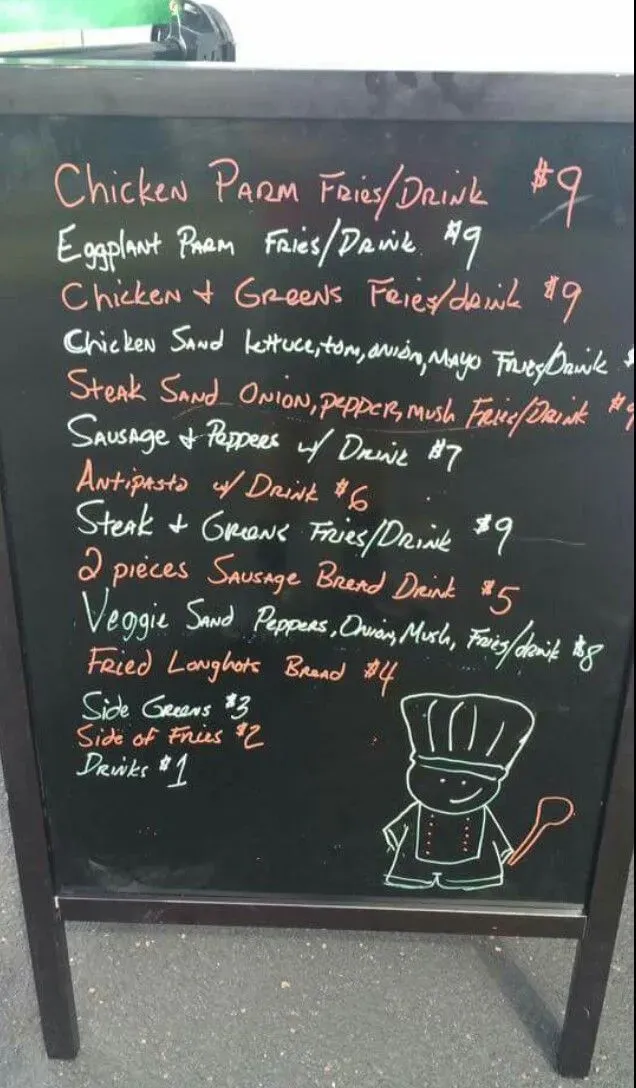 Chicken Parm Fries/Drink $9
Eggplant Parm Fries/Drink $9
Chicken + Greens Fries/drink $9
Chicken Sand Lettuce, tom, onion, mayo Fries/Drink $
Steak Sand Onion, pepper, mush Fries/Drink $9
Sausage + Peppers w/ Drink $7
Antipasto w/ Drink $6
Steak + Greens Fries/Drink $9
2 pieces Sausage Bread Drink $5
Veggie Sand Peppers, Onion, Mush, Fries/drink $8
Fried Longhots Bread $4
Side Greens $3
Side of Fries $2
Drinks $1